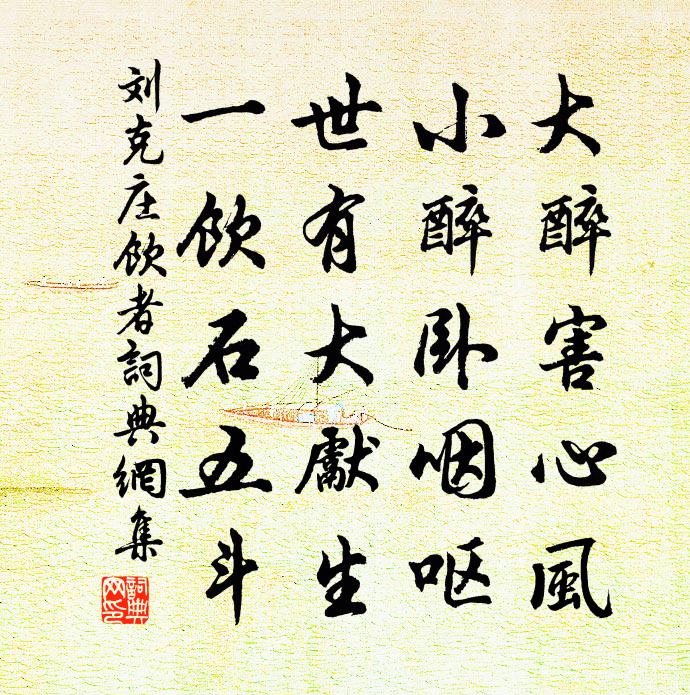 大醉害心風
小醉卧咽呕
世有大獻生
一飲石五斗
刘克庄飲者詞典網集
詞典網印